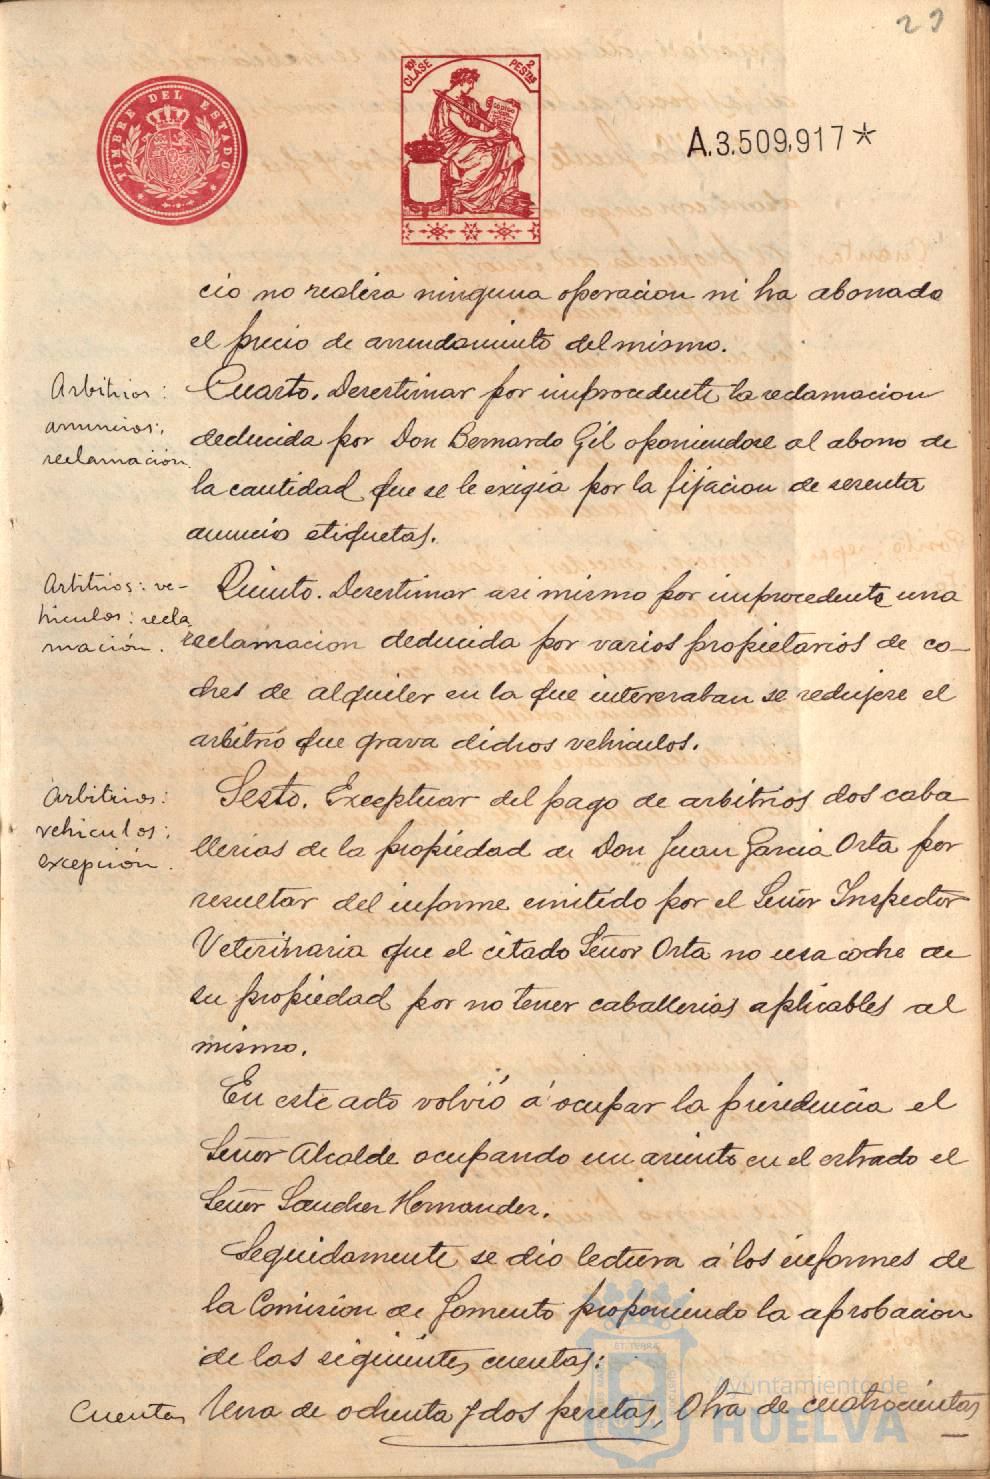 23
TIMBRE DEL ESTADO
10ª CLASE
2 PESTAS
A.3,509,917*
cio no realiza ninguna operacion ni ha abonado
el precio de arrendamiento del mismo.
Arbitrios:
anuncios:
reclamación.
Cuarto. Desestimar por improcedente la reclamacion
deducida por Don Bernardo Gil oponiendose al abono de
la cantidad que se le exigia por la fijacion de sesenta
anuncio etiquetas.
Arbitrios: ve-
hiculos: recla
mación.
Quinto. Desestimar asimismo por improcedente una
reclamacion deducida por varios propietarios de co-
ches de alquiler en la que interesaban se redujese el
arbitrio que grava dichos vehiculos.
Arbitrios:
vehiculos:
excepción.
Sesto. Exceptuar del pago de arbitrios dos caba
llerias de la propiedad de Don Juan Garcia Orta por
resultar del informe emitido por el Señor Inspector
Veterinaria que el citado Señor Orta no usa coche de
su propiedad por no tener caballerias aplicables al
mismo.
En este acto volvió á ocupar la presidencia el
Señor Alcalde ocupando un asiento en el estrado el
Señor Sanchez Hernandez.
Seguidamente se dio lectura á los informes de
la Comision de Fomento proponiendo la aprobacion
de las siguientes cuentas:
Cuentas
Una de ochenta y dos pesetas, Otra de cuatrocientas
Ayuntamiento de
HUELVA